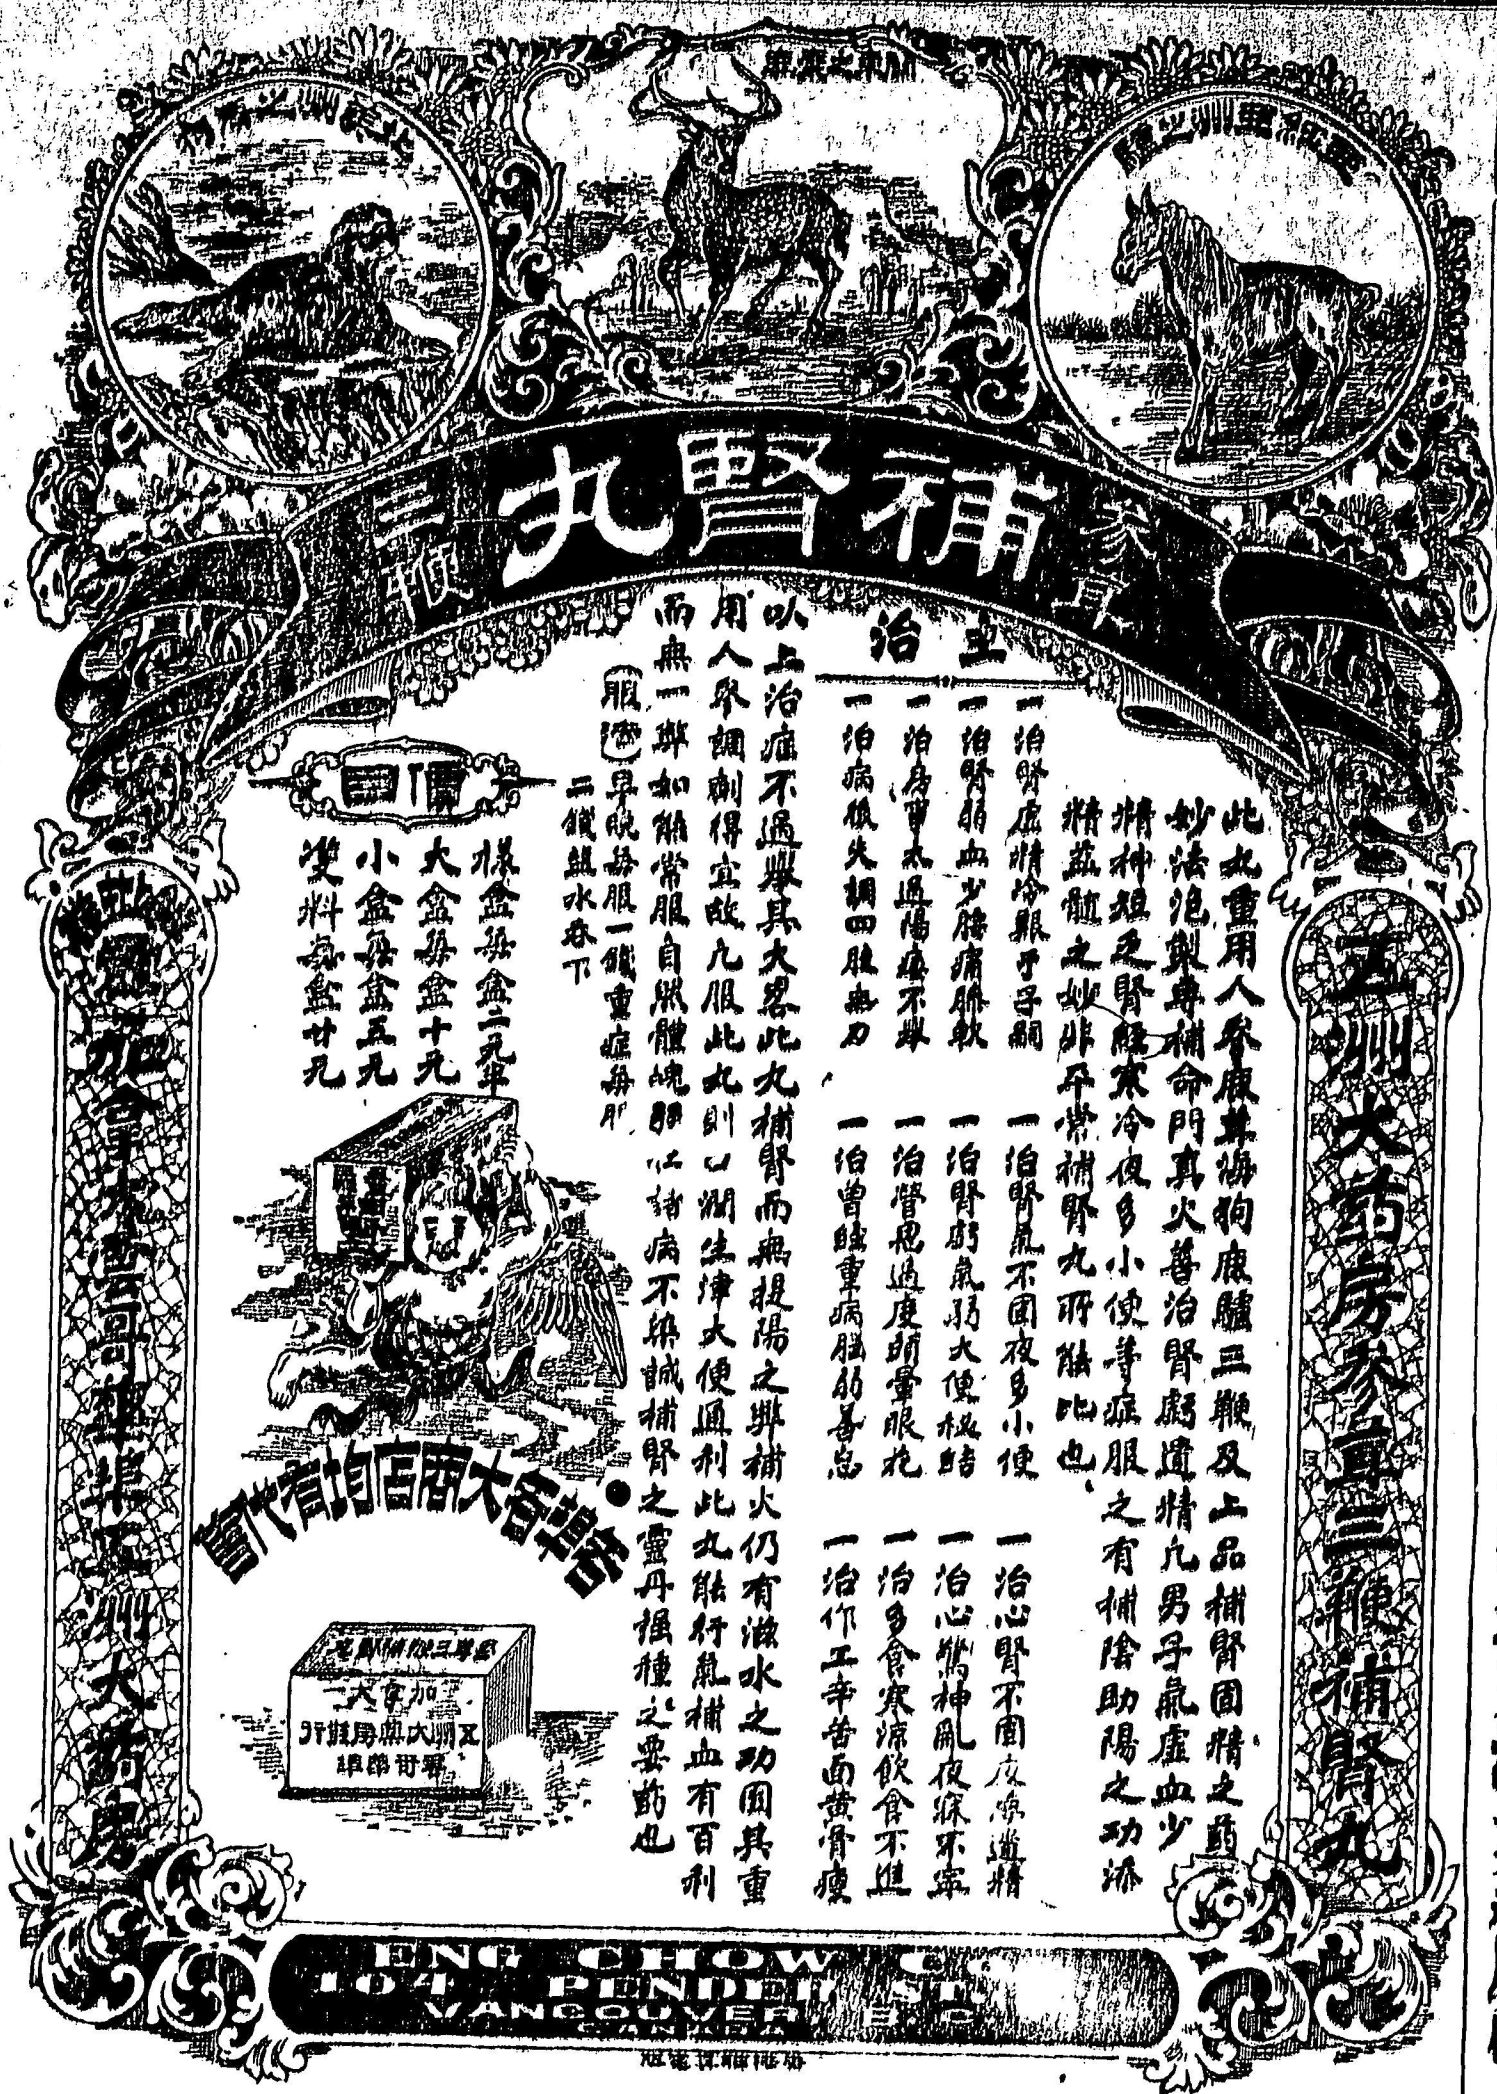 關東之鹿
補腎丸
參茸
三鞭
五洲大葯房參茸三鞭補腎丸
此丸重用人參鹿茸海狗鹿驢三鞭及上品補腎固精之葯
妙法泡製專補命門真火善治腎虧遺精凡男子氣虛血少
精神短乏腎經寒冷夜多小便等症服之有補陰助陽之功添
精益髓之妙非平常補腎丸所能比也
主治
一治腎虛精冷艱于子嗣
一治腎弱血少腰痛腳軟
一治房事太過陽痿不舉
一治病後失調四肢無力
一治腎氣不固夜多小便
一治腎虧氣弱大便秘結
一治營思過度頭暈眼花
一治曾經重病腦筋善忘
一治心腎不固夜夢遺精
一治心驚神亂夜寐不寧
一治多食寒涼飲食不進
一治作工辛苦面黃骨瘦
以上治症不過舉其大畧此丸補腎而無提陽之弊補火仍有滋水之功因其重
用人參調劑得宜故凡服此丸則潤生津大便通利此丸能行氣補血有百利
而無一弊如能常服自然體魄強壯諸病不染誠補腎之靈丹強種之要葯也
服法早晚每服一錢重症每服
二錢鹽水吞下
價目
樣盒每盒二元半
大盒每盒十元
小盒每盒五元
雙料每盒廿元
各埠各大商店均有代售
加拿大
五洲大葯房發行
雲哥華埠
加拿大雲哥華埠五洲大葯房
ENG CHOW
104 PENDER ST
VANCOUVER B C
CANADA